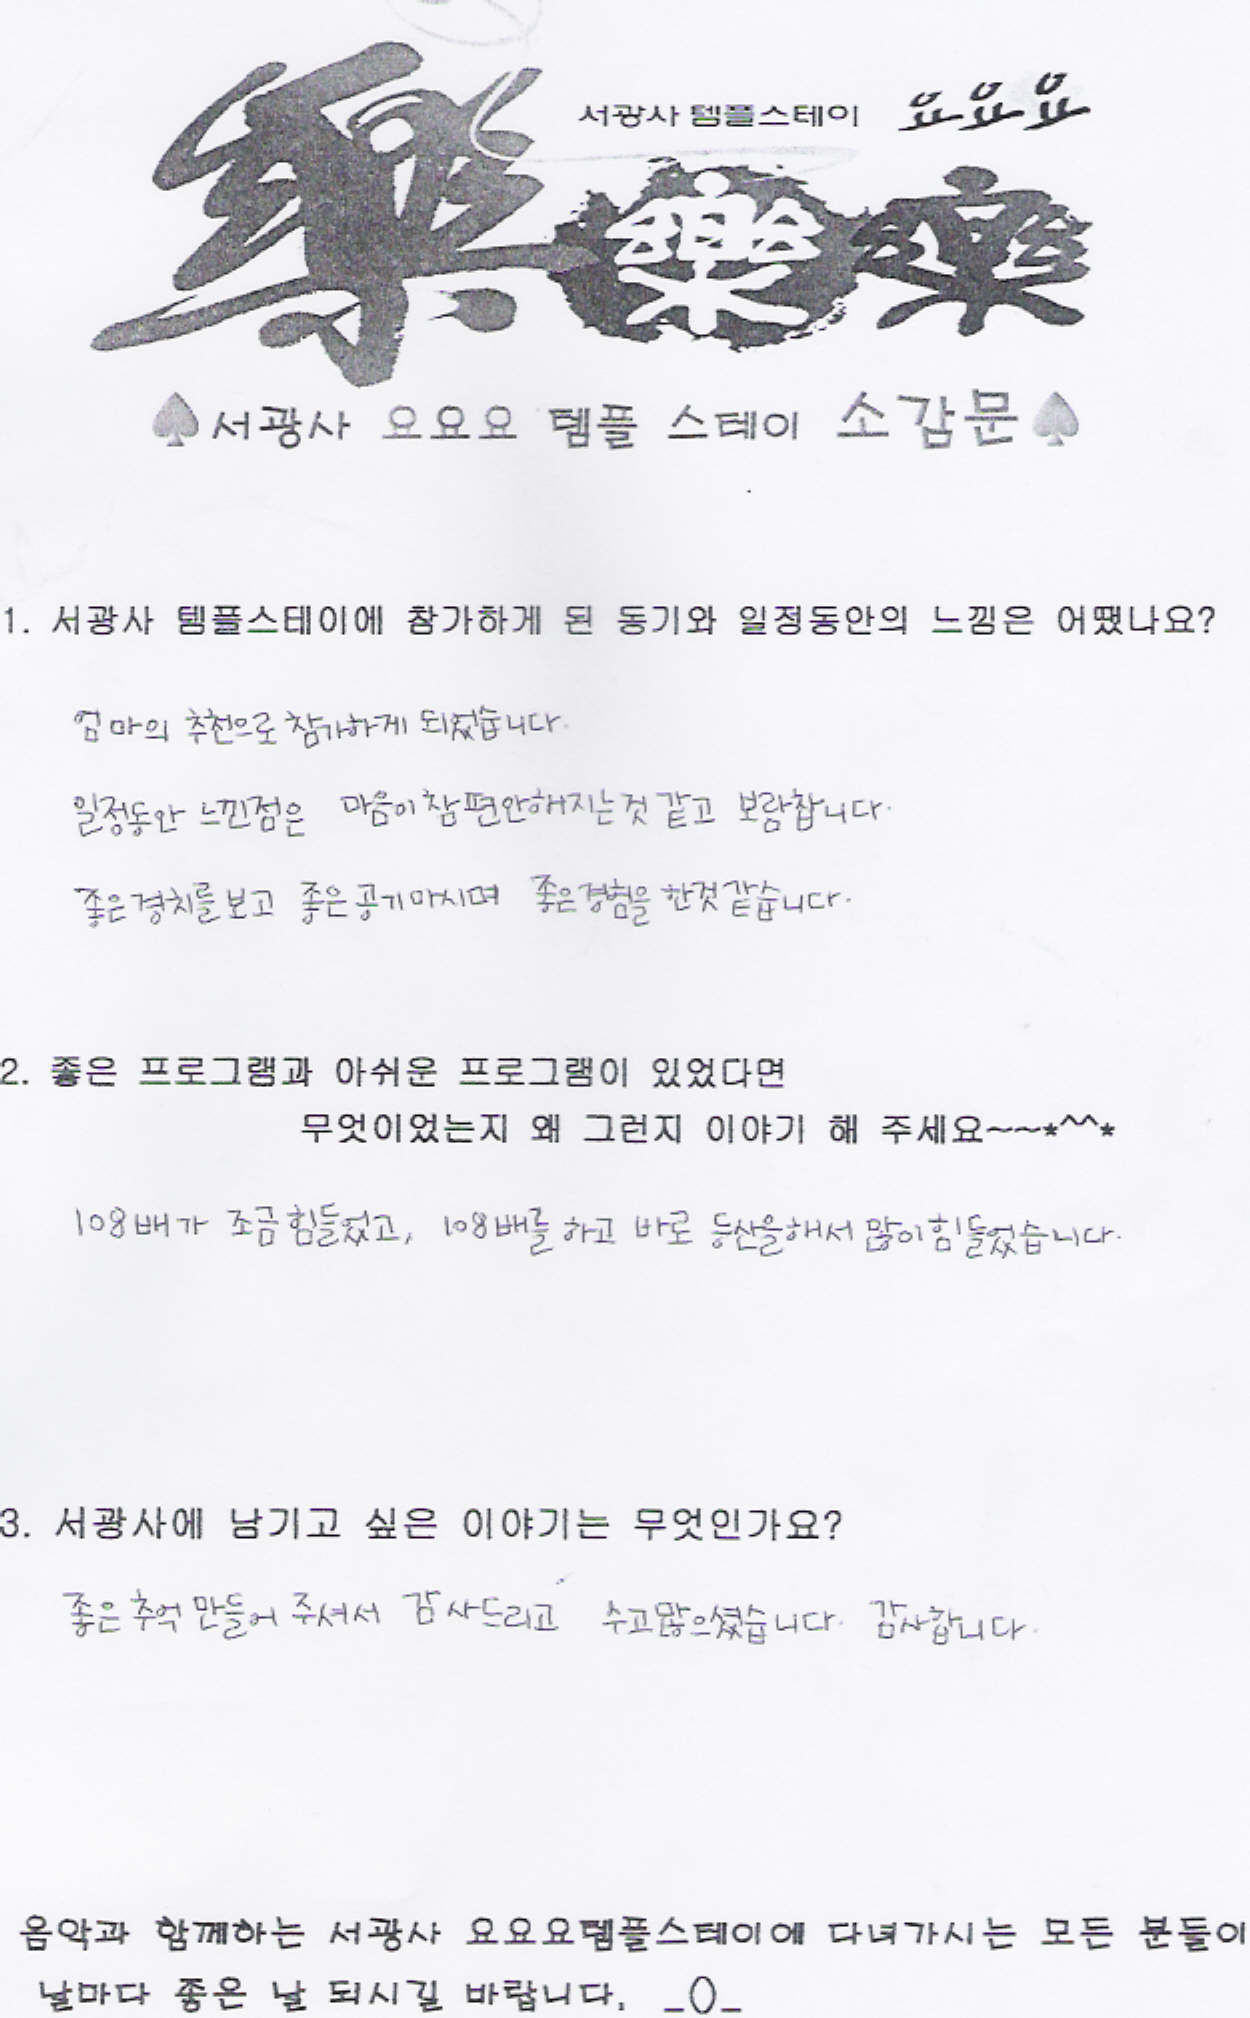 서광사 템플스테이 요요요
樂 樂 樂
♠서광사 요요요 템플 스테이 소감문♠
1. 서광사 템플스테이에 참가하게 된 동기와 일정동안의 느낌은 어땠나요?
엄마의 추천으로 참가하게 되었습니다.
일정동안 느낀점은 마음이 참 편안해지는것 같고 보람찹니다.
좋은경치를 보고 좋은공기마시며 좋은경험을 한것같습니다.
2. 좋은 프로그램과 아쉬운 프로그램이 있었다면
무엇이었는지 왜 그런지 이야기 해 주세요~~*^^*
108배가 조금 힘들었고, 108배를 하고 바로 등산을해서 많이힘들었습니다.
3. 서광사에 남기고 싶은 이야기는 무엇인가요?
좋은 추억 만들어 주셔서 감사드리고 수고많으셨습니다. 감사합니다.
음악과 함께하는 서광사 요요요템플스테이에 다녀가시는 모든 분들이
날마다 좋은 날 되시길 바랍니다. _()_